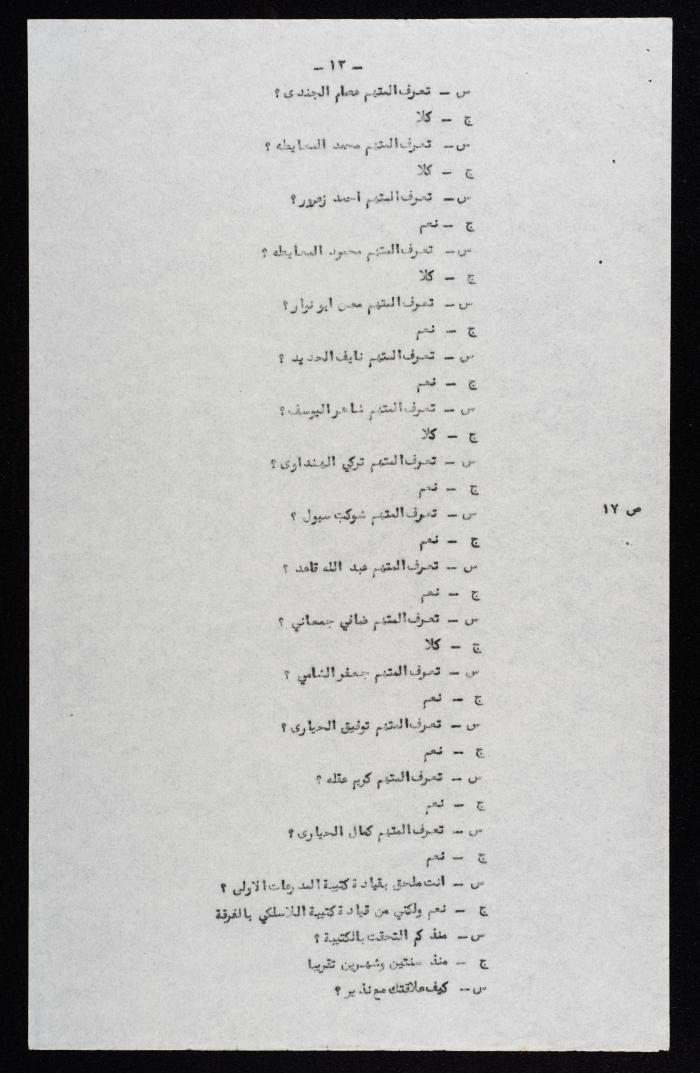 – ١٣ –
س – تعرف المتهم عصام الجندى ؟
ج – كلا
س – تعرف المتهم محمد المعايطه ؟
ج – كلا
س – تعرف المتهم احمد زعرور ؟
ج – نعم
س – تعرف المتهم محمود المعايطه ؟
ج – كلا
س – تعرف المتهم معن ابو نوار ؟
ج – نعم
س – تعرف المتهم نايف الحديد ؟
ج – نعم
س – تعرف المتهم شاهر اليوسف ؟
ج – كلا
س – تعرف المتهم تركي الهنداوى ؟
ج – نعم
س – تعرف المتهم شوكت سبول ؟
ص ١٧
ج – نعم
س – تعرف المتهم عبد الله قاعد ؟
ج – نعم
س – تعرف المتهم ضافي جمعاني ؟
ج – كلا
س – تعرف المتهم جعفر الشامي ؟
ج – نعم
س – تعرف المتهم توفيق الحيارى ؟
ج – نعم
س – تعرف المتهم كريم عقله ؟
ج – نعم
س – تعرف المتهم كمال الحيارى ؟
ج – نعم
س – انت ملحق بقيادة كتيبة المدرعات الاولى ؟
ج – نعم ولكني من قيادة كتيبة اللاسلكي بالفرقة
س – منذ كم التحقت بالكتيبة ؟
ج – منذ سنتين وشهرين تقريبا
س – كيف علاقتك مع نذير ؟